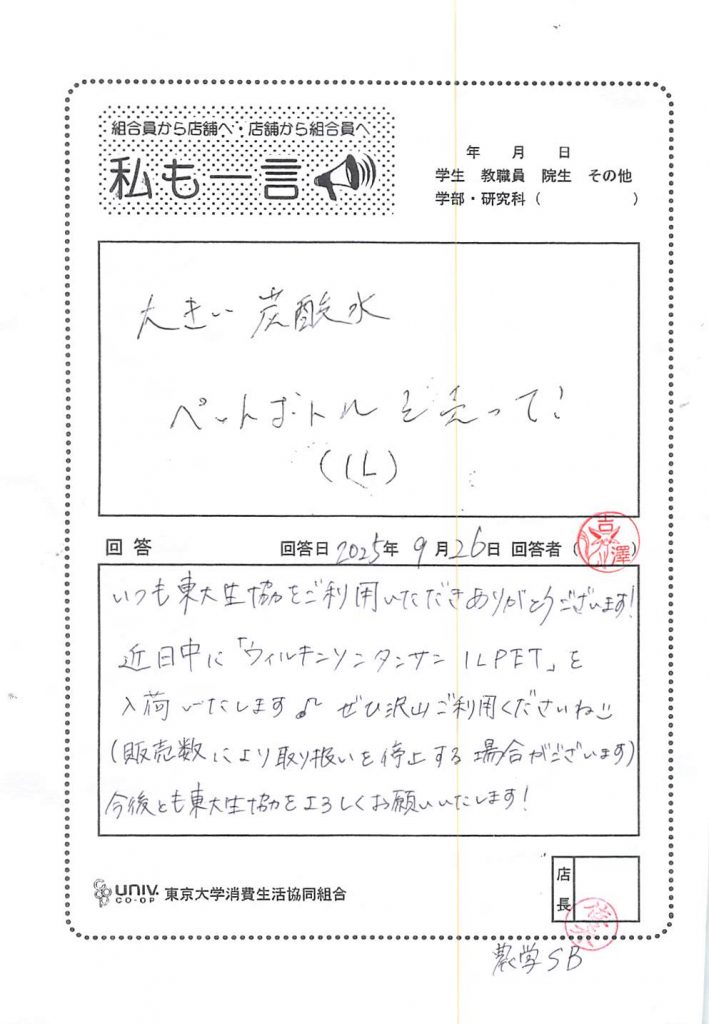 組合員から店舗へ・店舗から組合員へ
私も一言
年 月 日
学生 教職員 院生 その他
学部・研究科( )
大きい炭酸水
ペットボトルを売って!
(1L)
回答 回答日 2025年 9月26日 回答者(吉澤)
いつも東大生協をご利用いただきありがとうございます!
近日中に「ウィルキンソンタンサン 1LPET」を
入荷いたします♪ ぜひ沢山ご利用くださいね
(販売数により取り扱いを停止する場合がございます)
今後とも東大生協をよろしくお願いいたします!
UNIV. CO-OP 東京大学消費生活協同組合
店長
農学SB